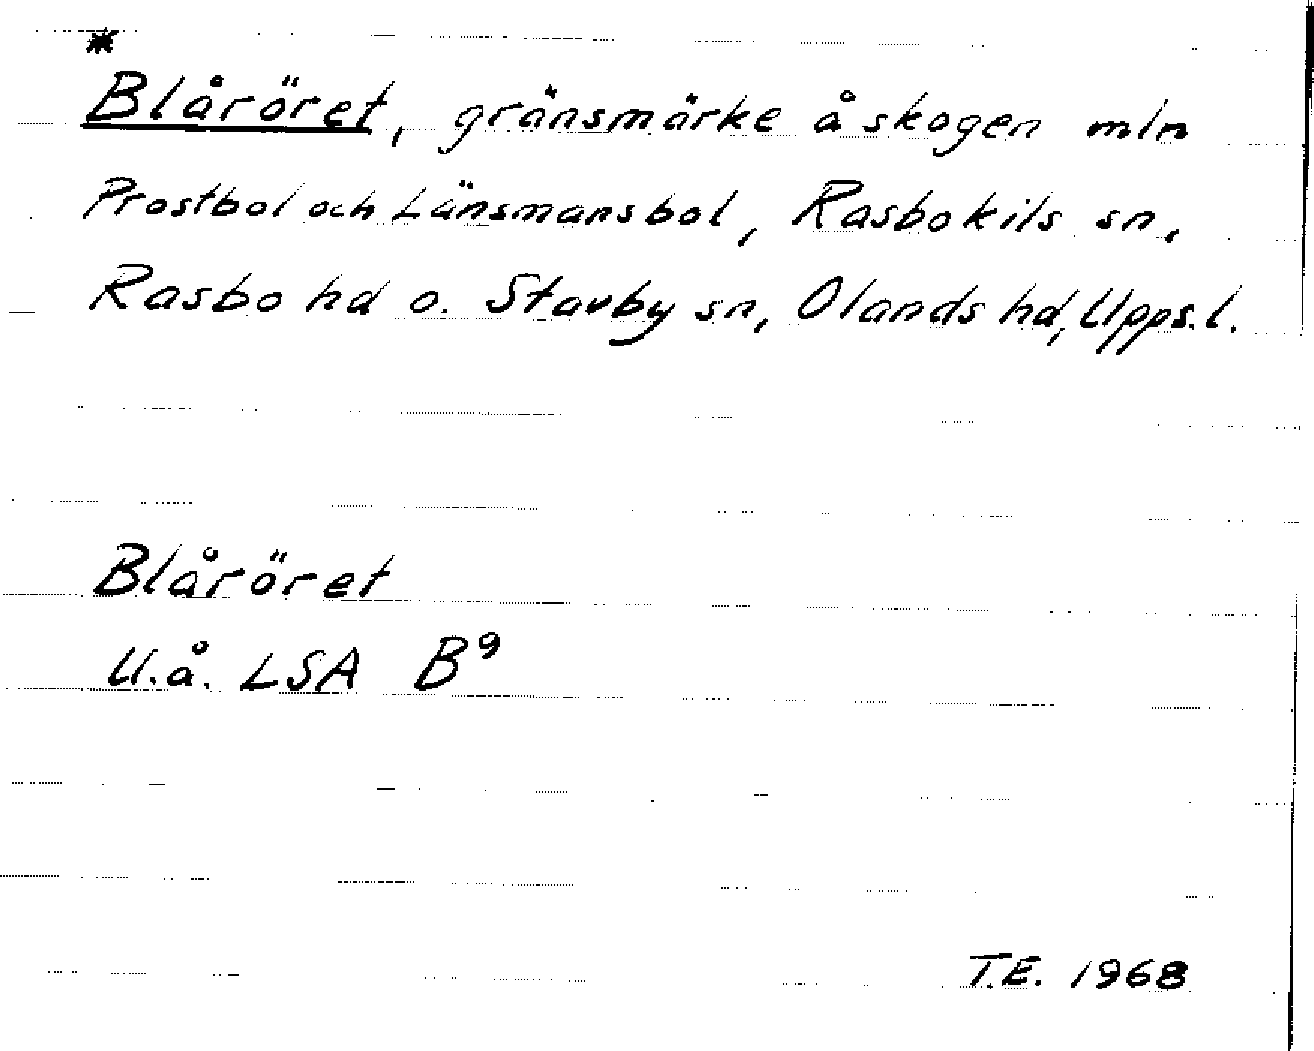 *
Blåröret, gränsmärke å skogen mln
Prostbol och Länsmansbol, Rasbokils sn,
Rasbo hd o. Stavby sn, Olands hd, Upps. l.
Blåröret
U.å. LSA B9
T.E. 1968